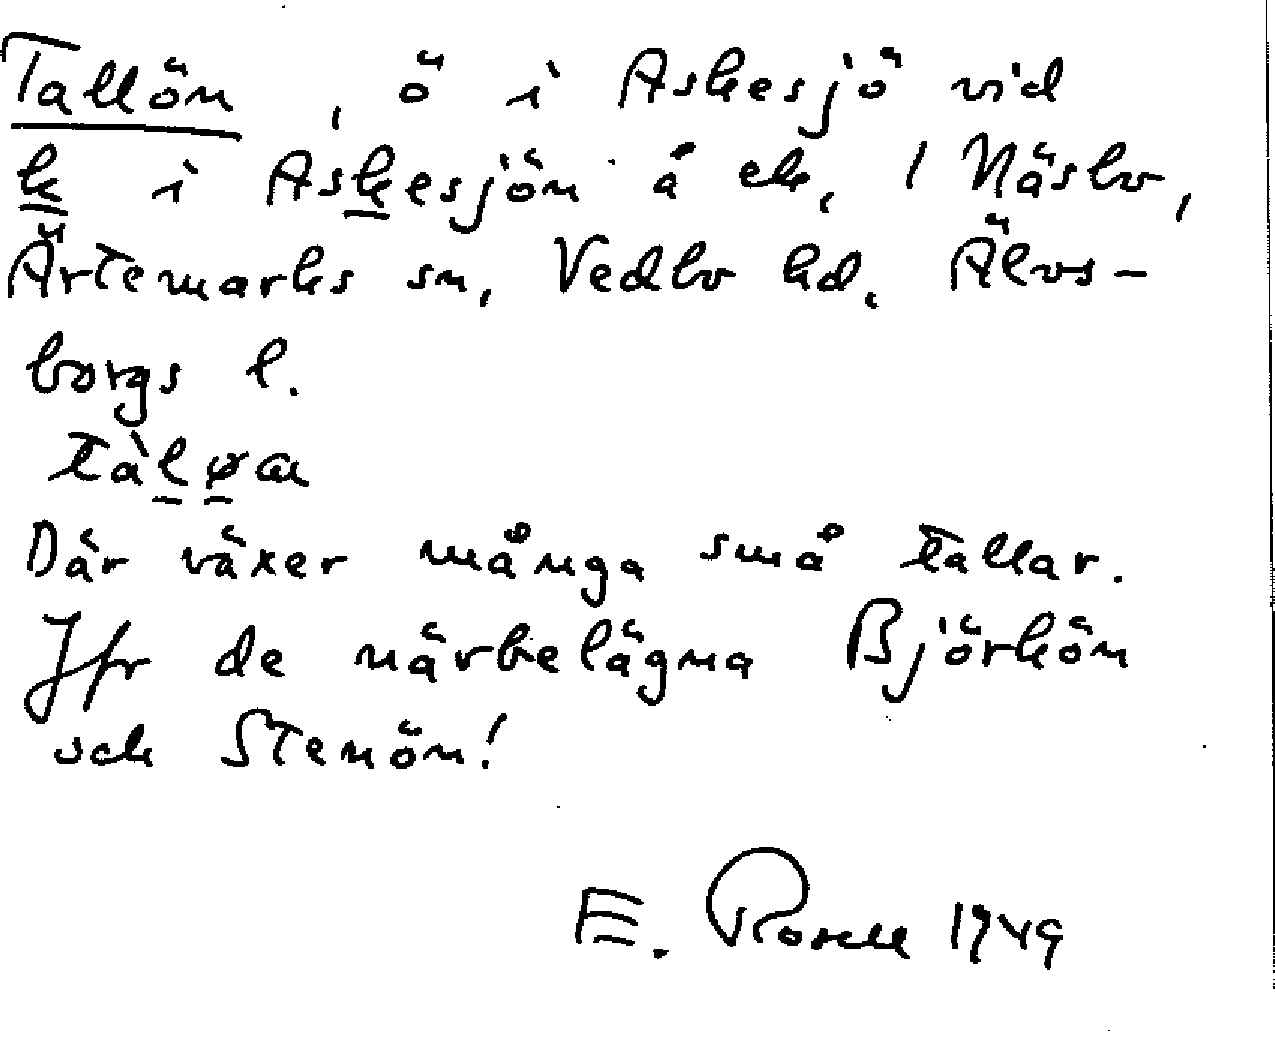 Tallön, ö i Askesjö vid
k i Askesjön å ek. 1 Näsbo,
Ärtemarks sn, Vedbo hd. Älvs-
borgs l.
Där växer många små tallar.
Jfr de närbelägna Björkön
och Stenön!
E. Rosell 1949